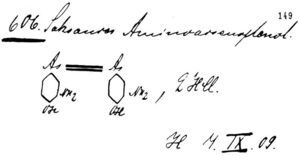 149
606. Salzsaures Aminoarsenophenol.
As As
NH2 NH2 , 2 HCl.
OH OH
IX. 09.